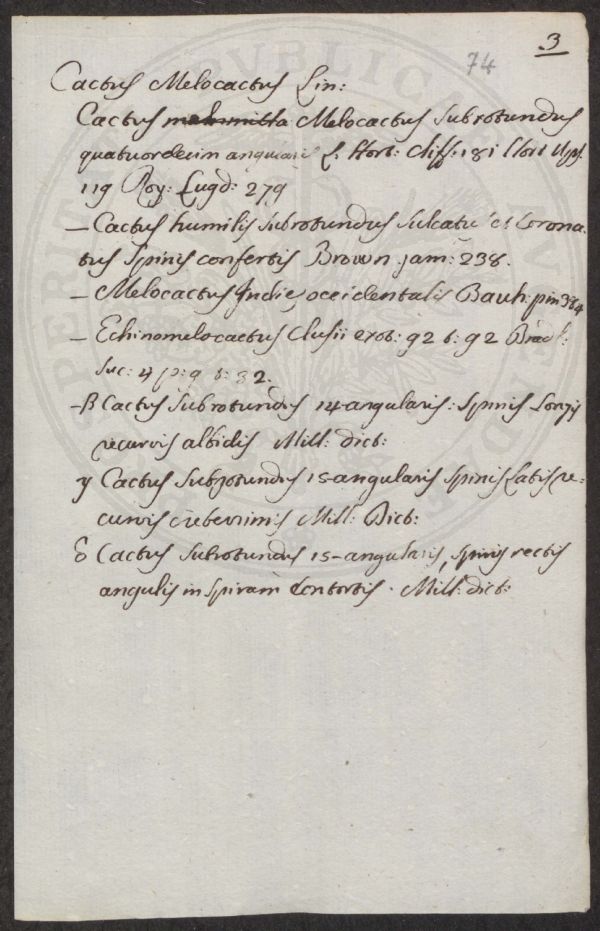 3
74
Cactus Melocactus Lin:
Cactus Melocactus Subrotundus
quatuordecim angularis L. Hort: Cliff: 181 Hort Ups:
119 Roy: Lugd: 279
– Cactus humilis Subrotundus Sulcatus et Corona
tus Spinis confertis Brown jam: 238.
– Melocactus Indiæ occidentalis Bauh: pin 384
– Echinomelocactus Clusii exot: 92 t: 92 Bradl:
Suc: 4 p: 9 t: 32.
– β Cactus Subrotundus 14-angularis: Spinis Longis
recurvis albidis Mill: dict:
γ Cactus Subrotundus 15-angularis Spinis Latis re-
curvis creberrimis Mill: Dict:
δ Cactus Subrotundus 15-angularis, Spinis rectis
angulis in Spiram Contortis. Mill: dict: